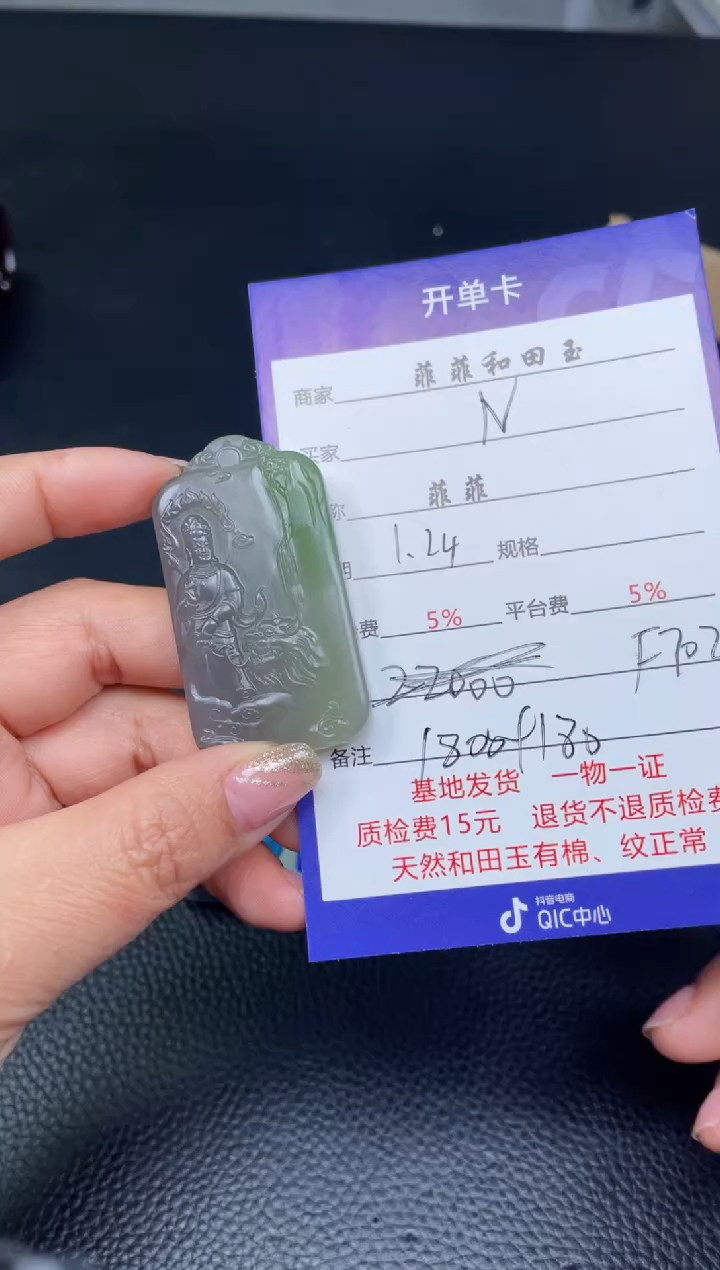 开单卡
商家 菲菲和田玉
买家 N
称 菲菲
期 1.24 规格
费 5% 平台费 5%
22000 F702
备注 1800f180
基地发货 一物一证
质检费15元 退货不退质检费
天然和田玉有棉、纹正常
抖音电商
QIC中心